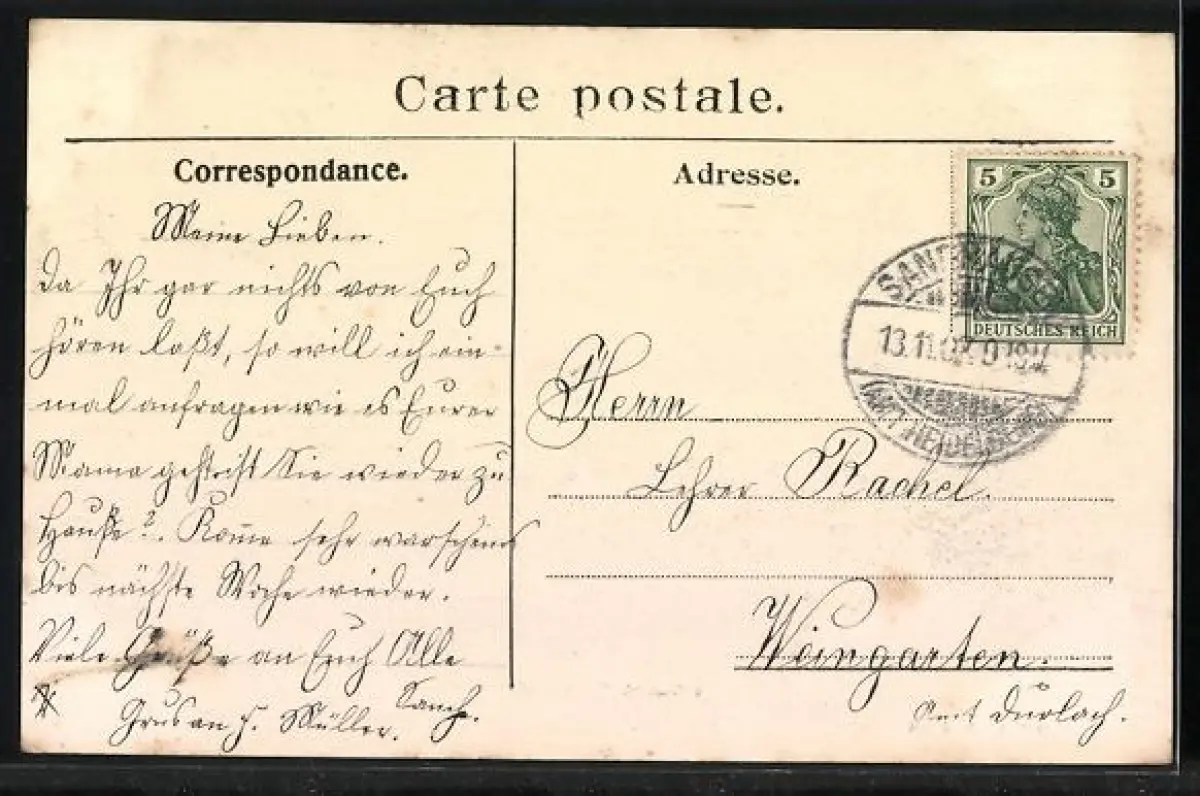 Carte postale.
Correspondance.
Meine Lieben.
Da Ihr gar nichts von Euch
hören laßt, so will ich ein-
mal anfragen wie es Eurer
Mama geht ist Sie wieder zu
Hauße? Kome sehr warscheins
bis nächste Woche wieder.
Viele Grüße an Euch Alle
Grus an F. Müller.
Adresse.
5 5
DEUTSCHES REICH
SANDHAUSEN
13.11.08.
(AMT HEIDELBERG)
Herrn
Lehrer Rachel.
Weingarten.
Amt Durlach.